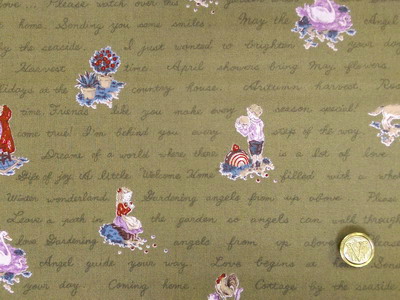 love ... Please watch over this garden
home. Sending you some smiles. May the Angel
by the seaside. I just wanted to brighten your day
Harvest time. April showers bring May flowers.
Holidays at the country house. Autumn harvest,
time. Friends like you make every season special!
come true! I'm behind you every step of the way.
Dreams of a world where there is a lot of love
Gifts of joy. A little Welcome Home filled with a
Winter wonderland. Gardening angels from up above. Please
Leave a path in the garden so angels can walk through
love Gardening angels from up above. Please
Angel guide your way. Love begins
your day. Coming home. Cottage by the seaside